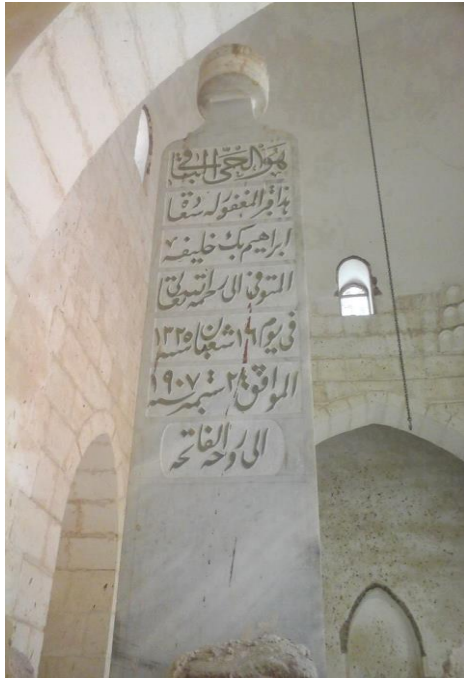 هو الحي الباقي
هذا قبر المغفور له سعادة
ابراهيم بك خليفه
المتوفى الى رحمة الله تعالى
فى يوم ١٦ شعبان سنة ١٣٢٥
الموافق ٢٤ سبتمبر سنة ١٩٠٧
الى روحه الفاتحه